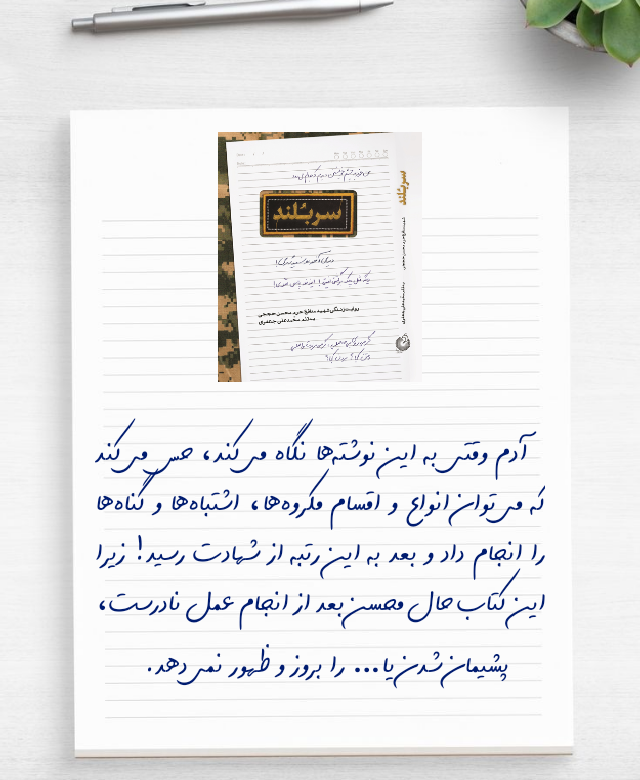 سربلند
سربلند
روایت زندگی شهید مدافع حرم محسن حججی
محمدعلی جعفری
آدم وقتی به این نوشته‌ها نگاه می‌کند، حس می‌کند
که می‌توان انواع و اقسام مکروه‌ها، اشتباه‌ها و گناه‌ها
را انجام داد و بعد به این رتبه از شهادت رسید! زیرا
این کتاب حال محسن بعد از انجام عمل نادرست،
پشیمان شدن یا... را بروز و ظهور نمی‌دهد.